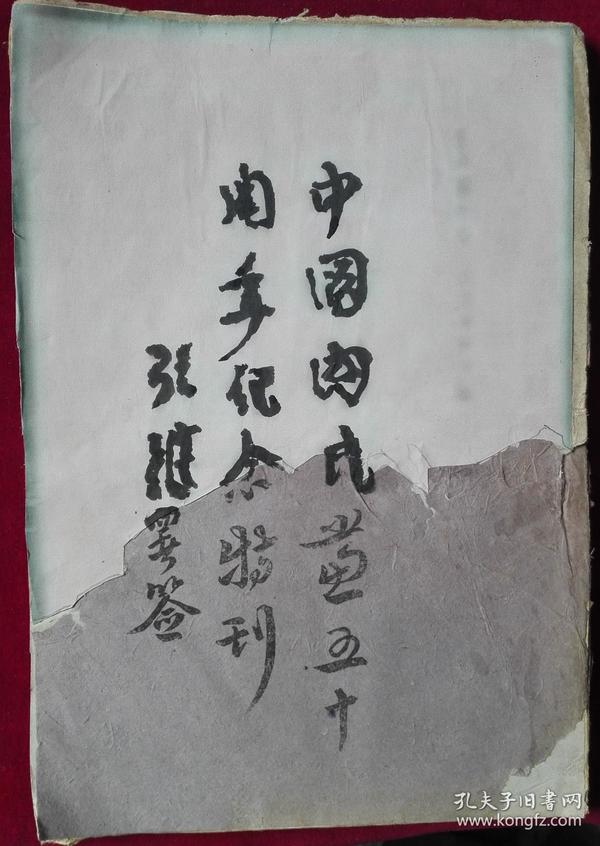 中国国民党五十
周年纪念特刊
张继署签
孔夫子旧书网
www.kongfz.com